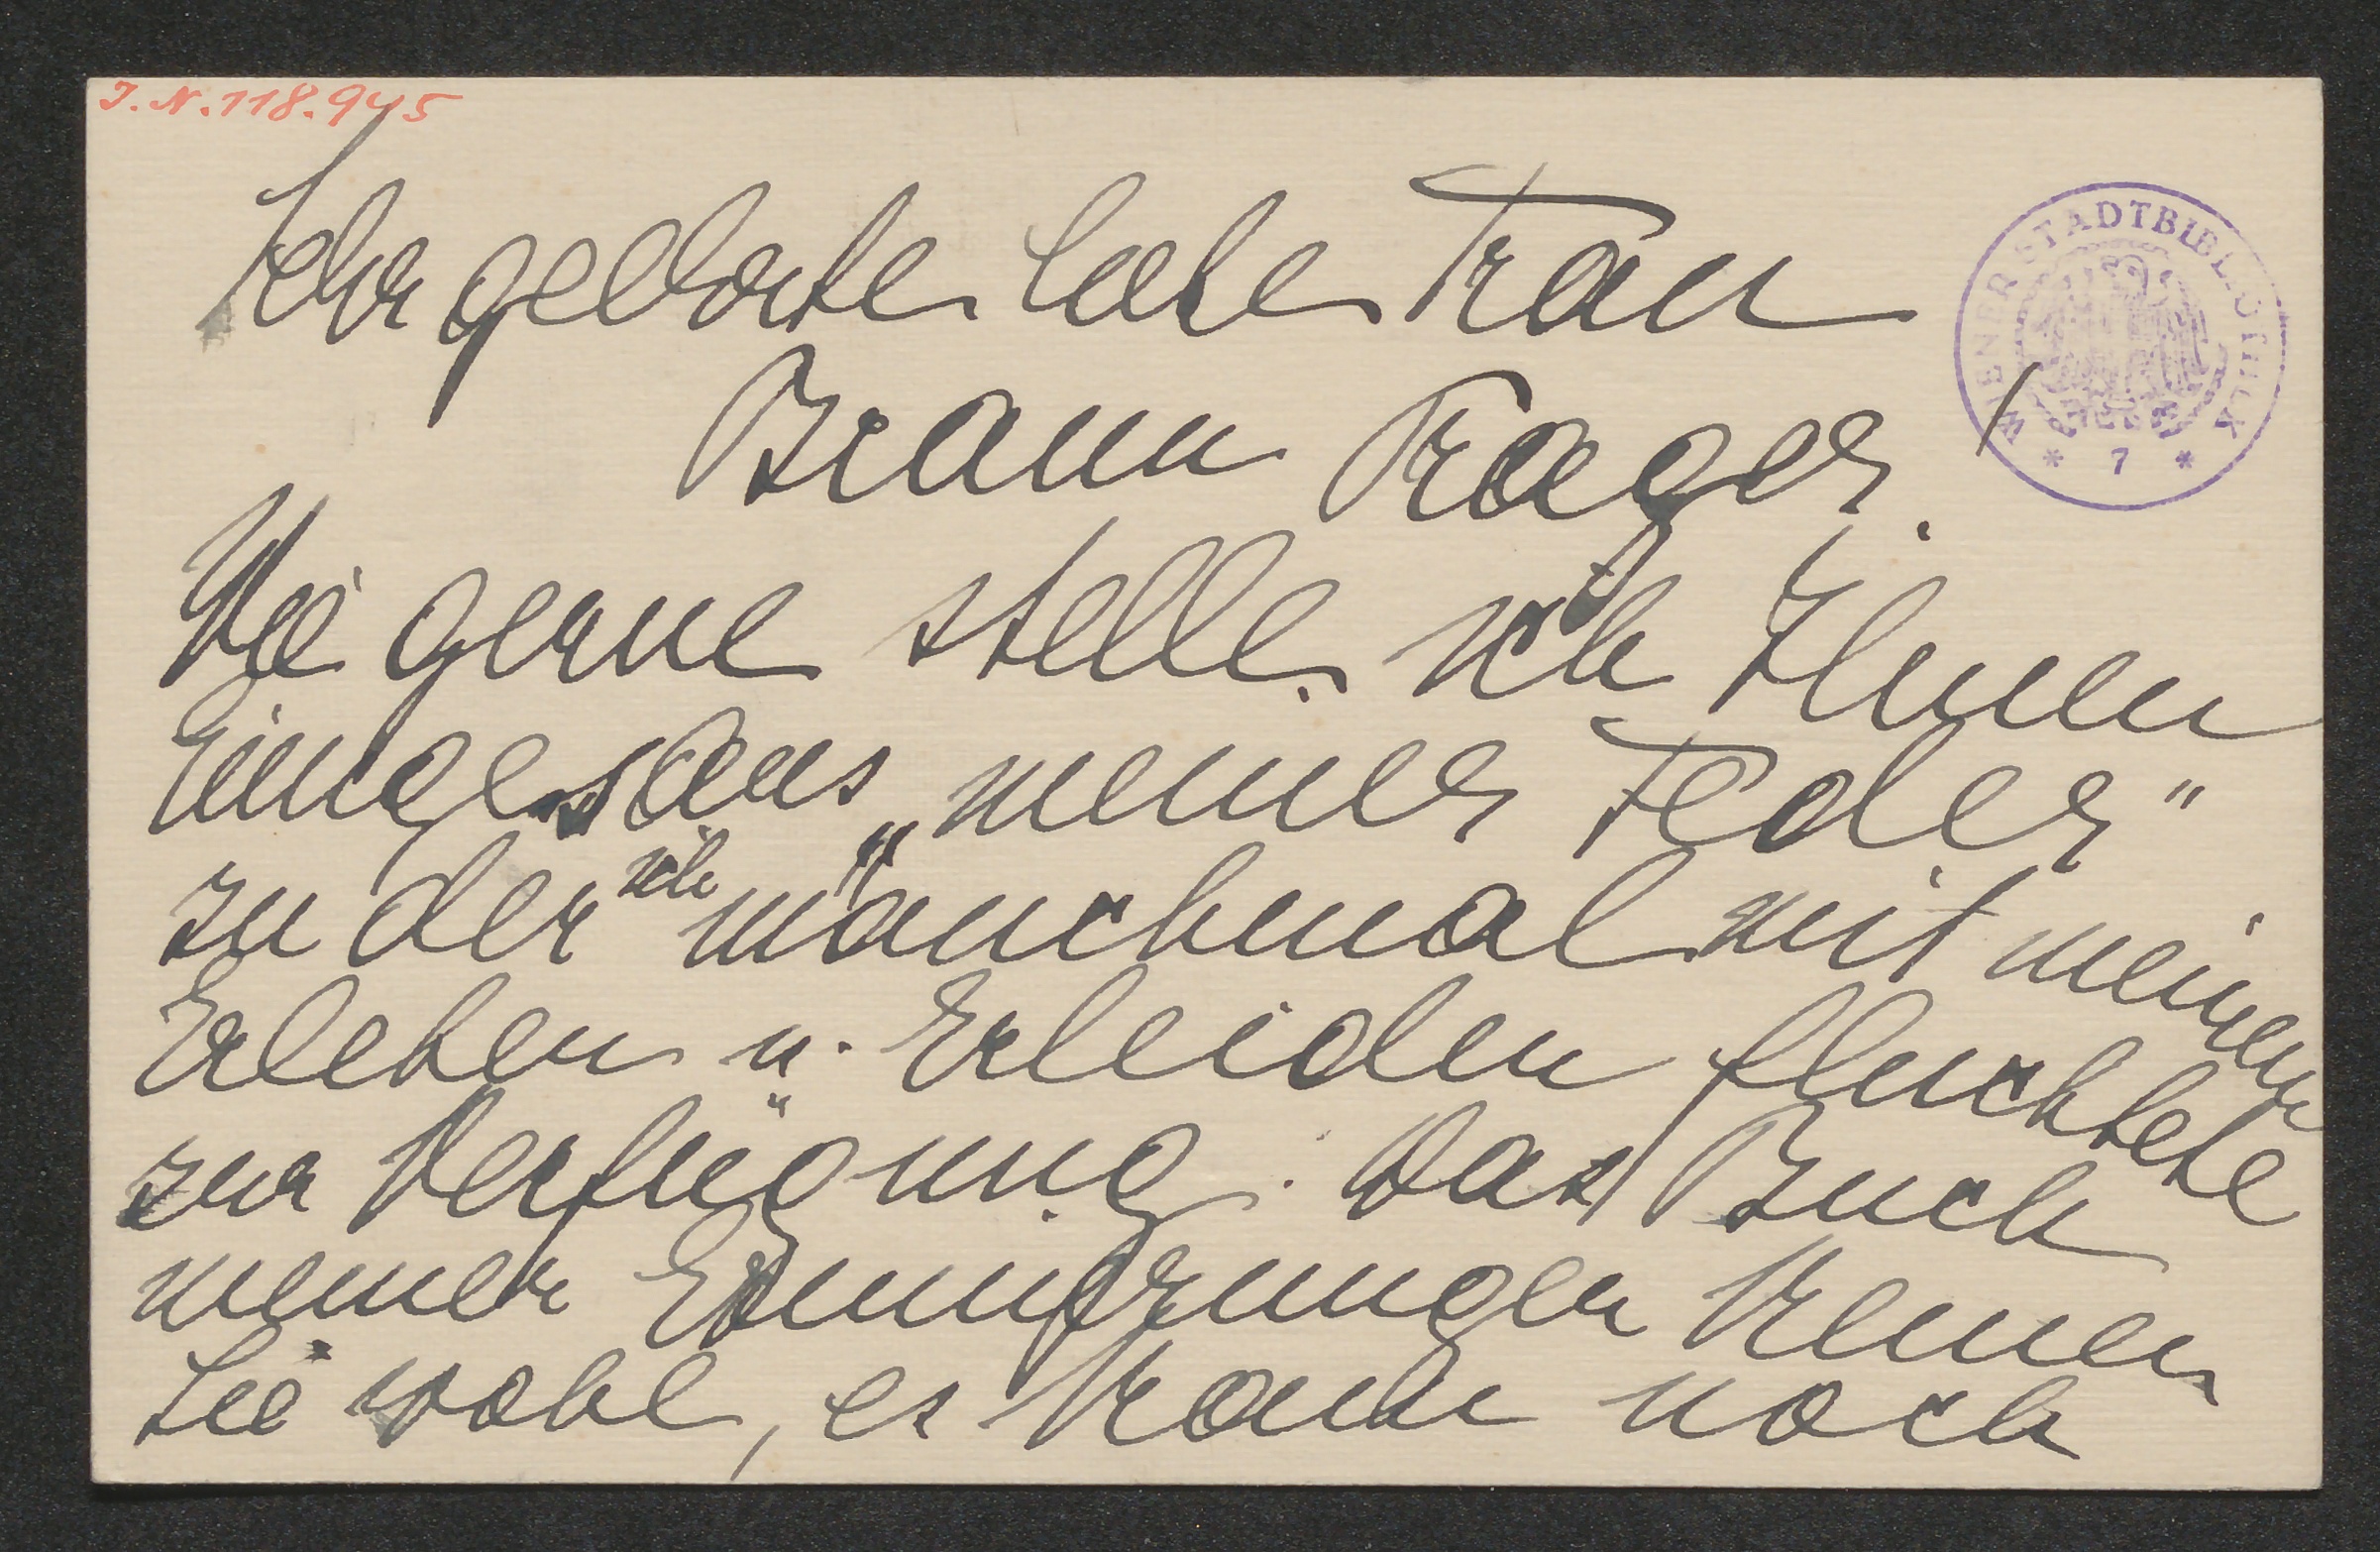 I.N.118.945
Sehr geehrte liebe Frau
Braun Prager!
WIENER STADTBIBLIOTHEK
* 7 *
Wie gerne stelle ich Ihnen
Einiges aus „meiner Feder“
zu der ich manchmal mit meinem
Erleben u. Erleiden fluchtete
zur Verfügung. Das Buch
meiner Erinnerungen kennen
Sie wohl, es kam noch